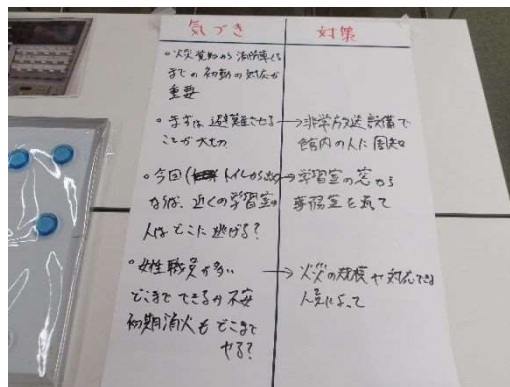 気づき
対策
・火災覚知から消防車くる
までの初動の対応が
重要
・まずは避難させる
ことが大切
→非常放送設備で
館内の人に周知
・今回(トイレから出火)
なら、近くの学習室の
人はどこに逃げる?
→学習室の窓から
事務室を通って
・女性職員が多い
どこまでできるか不安
初期消火もどこまで
やる?
→火災の規模や対応できる
人員によって